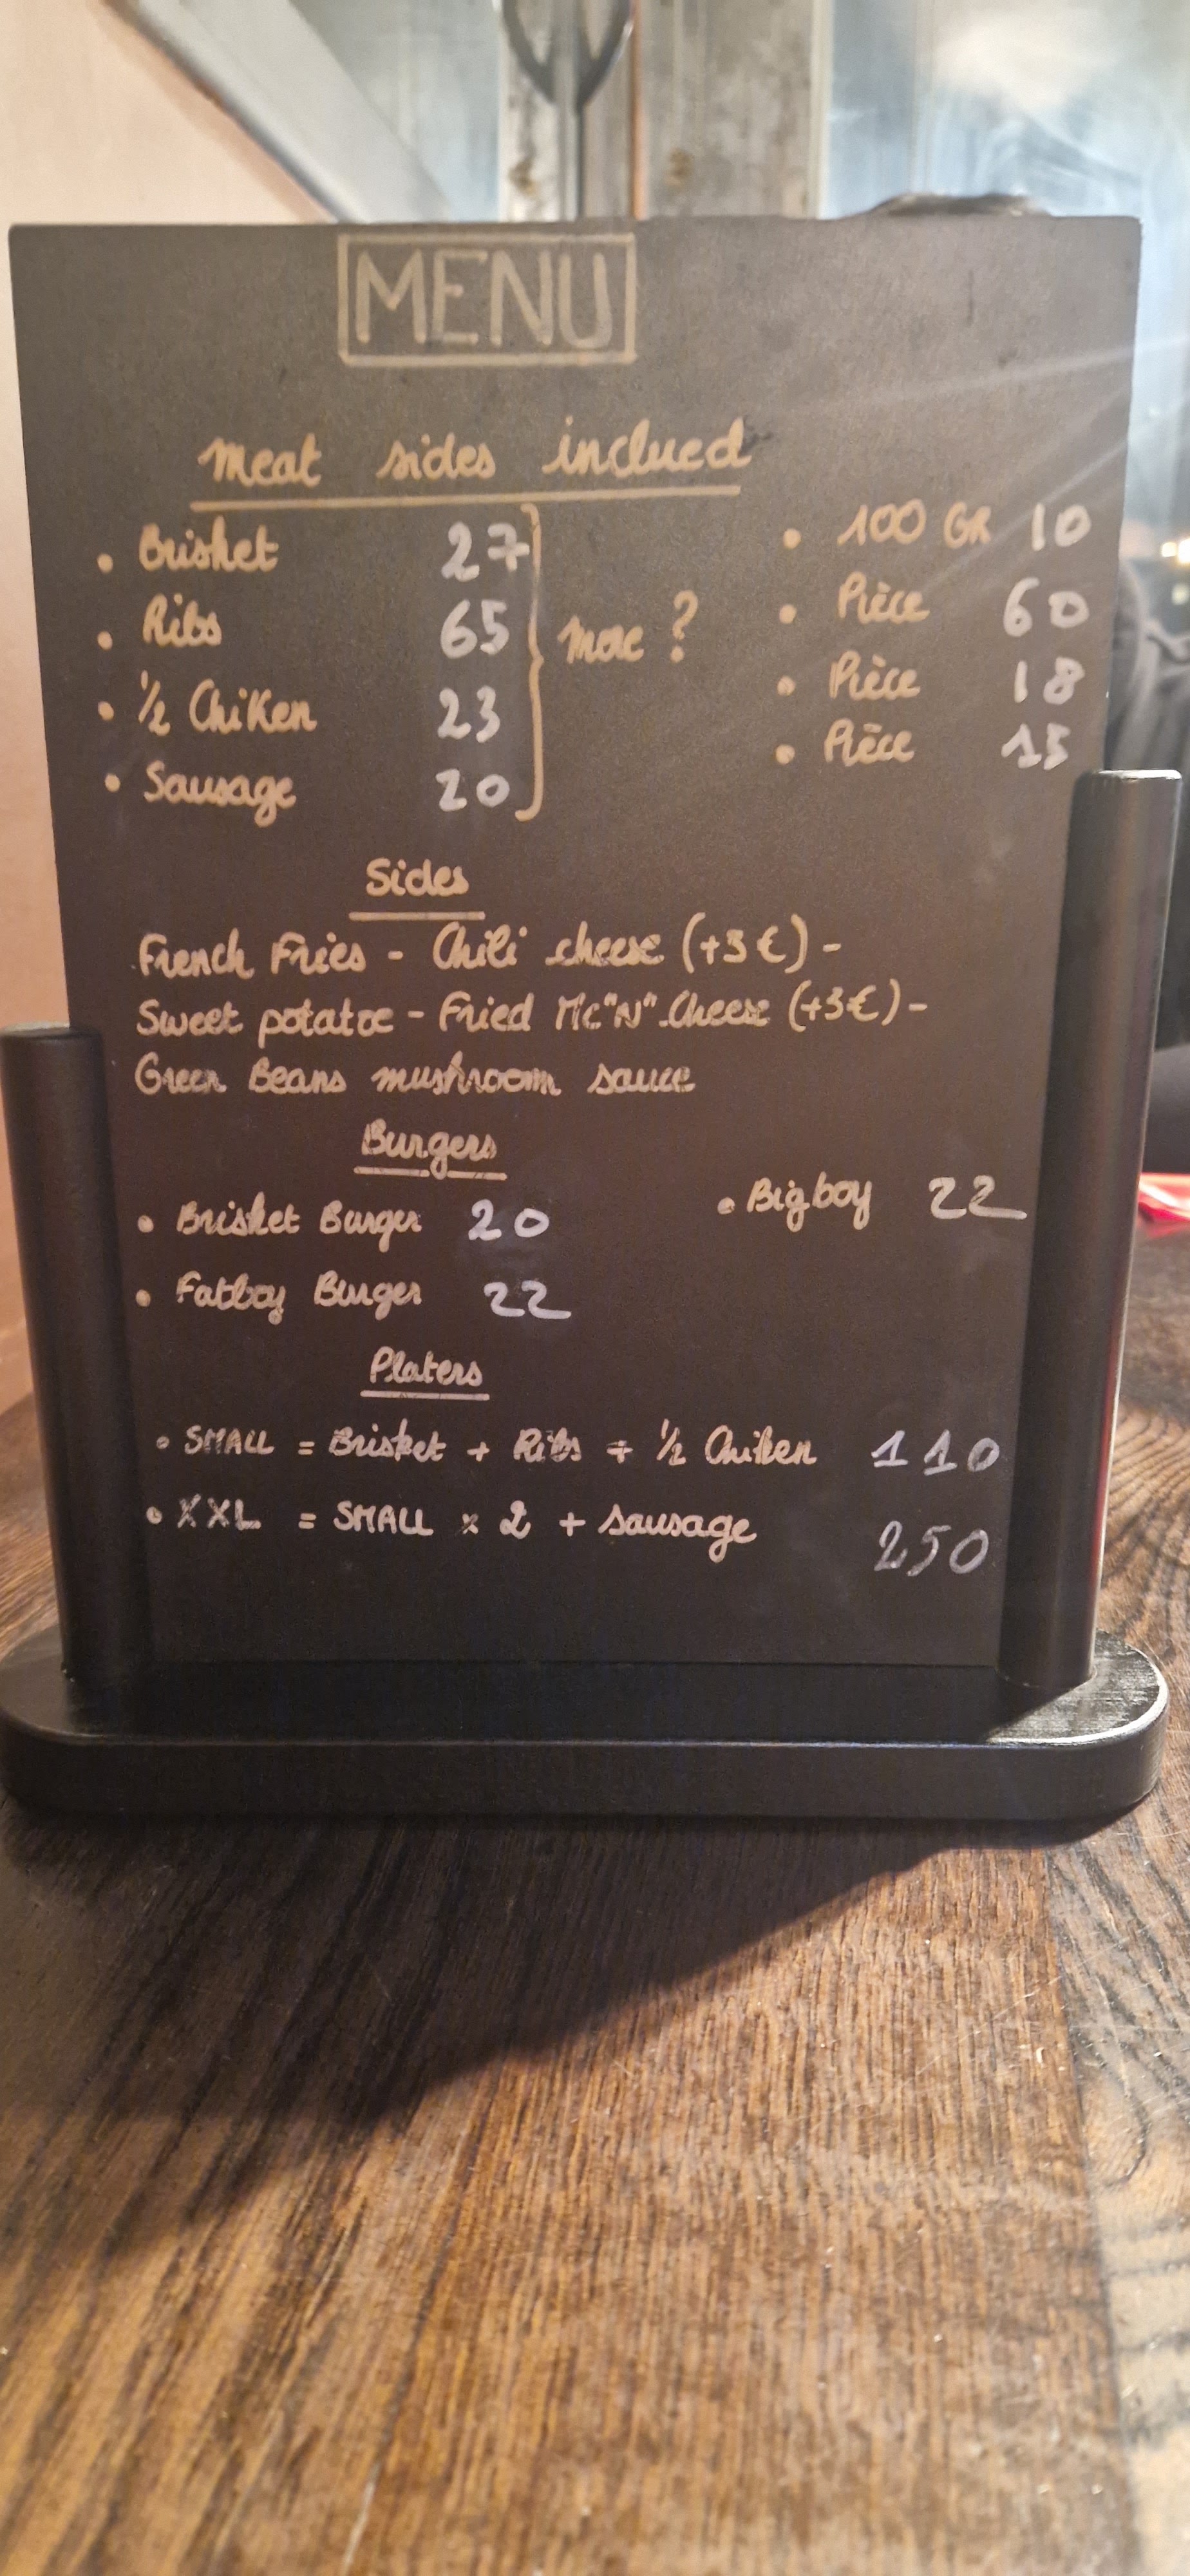 MENU
Meat sides inclued
• Brisket 27
• Ribs 65
• 1/2 Chiken 23
• Sausage 20
More ?
• 100 GR 10
• Pièce 60
• Pièce 18
• Pièce 15
Sides
French Fries - Chili cheese (+3€) -
Sweet potatoe - Fried Mc"N".Cheese (+3€) -
Green Beans mushroom sauce
Burgers
• Brisket Burger 20
• Bigboy 22
• Fatboy Burger 22
Platers
• SMALL = Brisket + Ribs + 1/2 Chiken 110
• XXL = SMALL x 2 + sausage 250